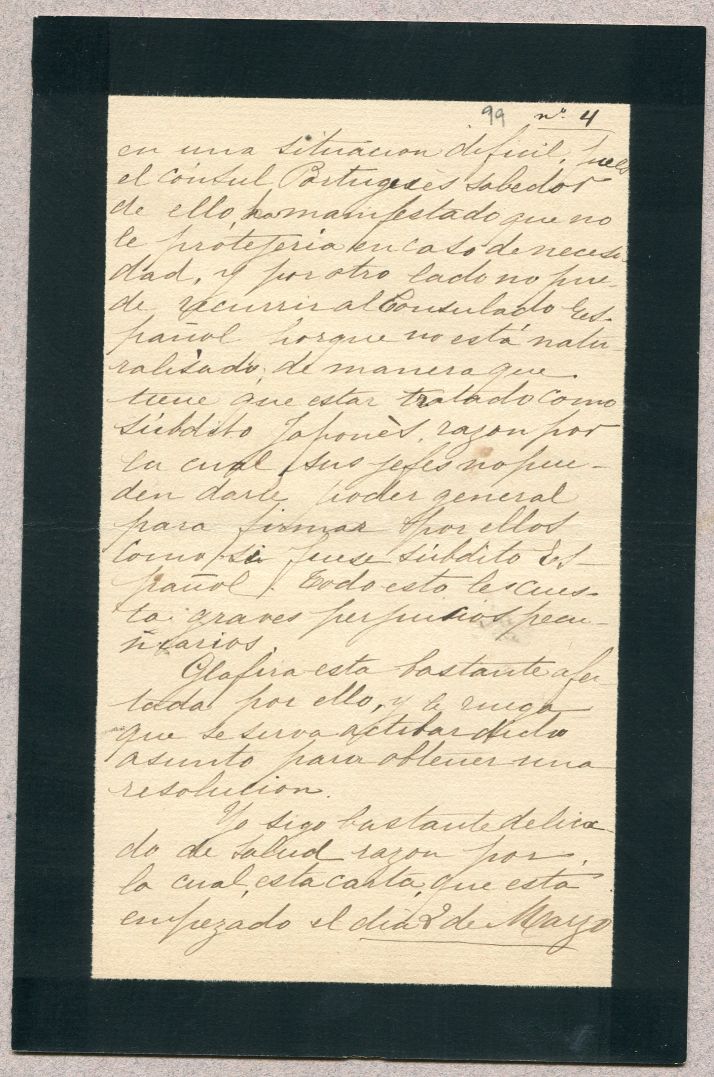 99 nº 4
en una situacion dificil, pues
el cónsul Portugués sabedor
de ello, ha manifestado que no
le protejería en caso de necesi-
dad, y por otro lado no pue-
de recurrir al Consulado Es-
pañol porque no está natu-
ralisado, de manera que
tiene que estar tratado como
súbdito Japonès, razon por
la cual, sus jefes no pue-
den darle poder general
para firmar por ellos
como si fuese súbdito Es-
pañol. Todo esto les cues-
ta graves perjuicios pecu-
niarios.
Glafira esta bastante afec-
tada por ello, y le ruega
que se serva activar dicho
asunto para obtener una
resolucion.
Yo sigo bastante delica-
do de salud razon por
la cual, esta carta, que está
empezado el dia 2 de Mayo